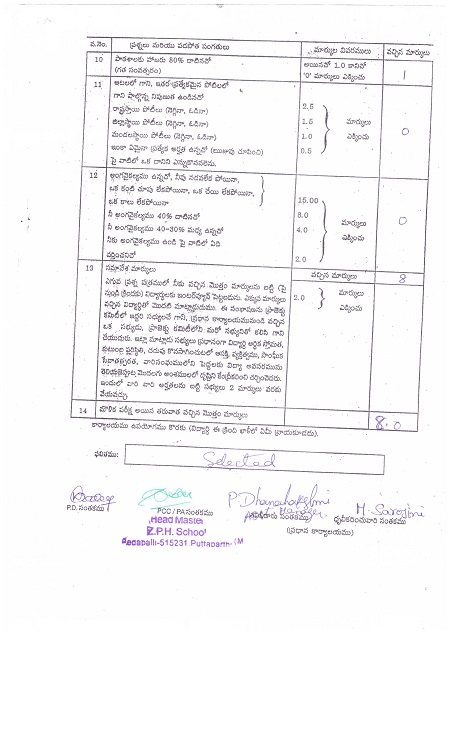 వ.నెం. ప్రశ్నలు మరియు పడపోత సంగతులు మార్కుల వివరములు వచ్చిన మార్కులు
10 పాఠశాలకు హాజరు 80% దాటినచో అయినచో 1.0 కానిచో 1
(గత సంవత్సరం) '0' మార్కులు ఎక్కించు
11 ఆటలలో గాని, ఇతర ప్రత్యేకమైన పోటీలలో
గాని పాల్గొన్న నిపుణుత ఉండినచో
రాష్ట్రస్థాయి పోటీలు (నెగ్గినా, ఓడినా) 2.5
జిల్లాస్థాయి పోటీలు (నెగ్గినా, ఓడినా) 1.5 మార్కులు 0
మండలస్థాయి పోటీలు (నెగ్గినా, ఓడినా) 1.0 ఎక్కించు
ఇంకా ఏమైనా ప్రత్యేక అర్హత ఉన్నచో (ఋజువు చూపించి) 0.5
పై వాటిలో ఒక దానిని ఎన్నుకొనవలెను.
12 అంగవైకల్యము ఉన్నచో, నీవు నడవలేక పోయినా,
ఒక కంటి చూపు లేకపోయినా, ఒక చేయి లేకపోయినా,
ఒక కాలు లేకపోయినా 15.00
నీ అంగవైకల్యము 40% దాటినచో 8.0 మార్కులు 0
నీ అంగవైకల్యము 40-30% మధ్య ఉన్నచో 4.0 ఎక్కించు
నీకు అంగవైకల్యము ఉండి పై వాటిలో ఏది
వర్తించనిచో 2.0
13 సమావేశ మార్కులు వచ్చిన మార్కులు 8
ఎగువ ప్రశ్న పత్రములో నీకు వచ్చిన మొత్తం మార్కులను బట్టి (పై 2.0 మార్కులు
విద్యార్థులకు ఇంటర్వ్యూన్ పెట్టబడును. ఎక్కువ మార్కులు ఎక్కించు
వచ్చిన విద్యార్థితో మొదటి మాట్లాడుదుము. ఈ సంభాషణను ప్రాజెక్టు
కమిటీలో ఇద్దరి సభ్యులనే గాని, (ప్రధాన కార్యాలయమునుండి వచ్చిన
ఒక సభ్యుడు, ప్రాజెక్టు కమిటీలోని మరో సభ్యునితో కలిసి గాని
చేయుదురు. ఇట్లా మాట్లాడు సభ్యులు ప్రధానంగా విద్యార్థి ఆర్థిక స్తోమత,
కుటుంబ పరిస్థితి, చదువు కొనసాగించుటలో ఆసక్తి, వ్యక్తిత్వము, సాంఘిక
సేవాతత్పరత, వారిసంఘములోని పెద్దలకు విద్యా అవసరమును
తెలియజెప్పుట మొదలగు అంశములలో దృష్టిని కేంద్రీకరించి చర్చించెదరు.
ఇందులో వారి వారి అర్హతలను బట్టి సభ్యులు 2 మార్కులు వరకు
వేయవచ్చు.
14 మౌళిక పరీక్ష అయిన తరువాత వచ్చిన మొత్తం మార్కులు 8.0
కార్యాలయము ఉపయోగము కొరకు (విద్యార్థి ఈ క్రింది ఖాళీలో ఏమీ వ్రాయకూడదు).
ఫలితము: Selected
P. Dhanalakshmi M. Sarojini
P.D. సంతకము PCC / PA సంతకము సంతకము ధృవీకరించువారి సంతకము
Head Master (ప్రధాన కార్యాలయము)
Z.P.H. School
Pedaballi-515231, Puttaparthi (M